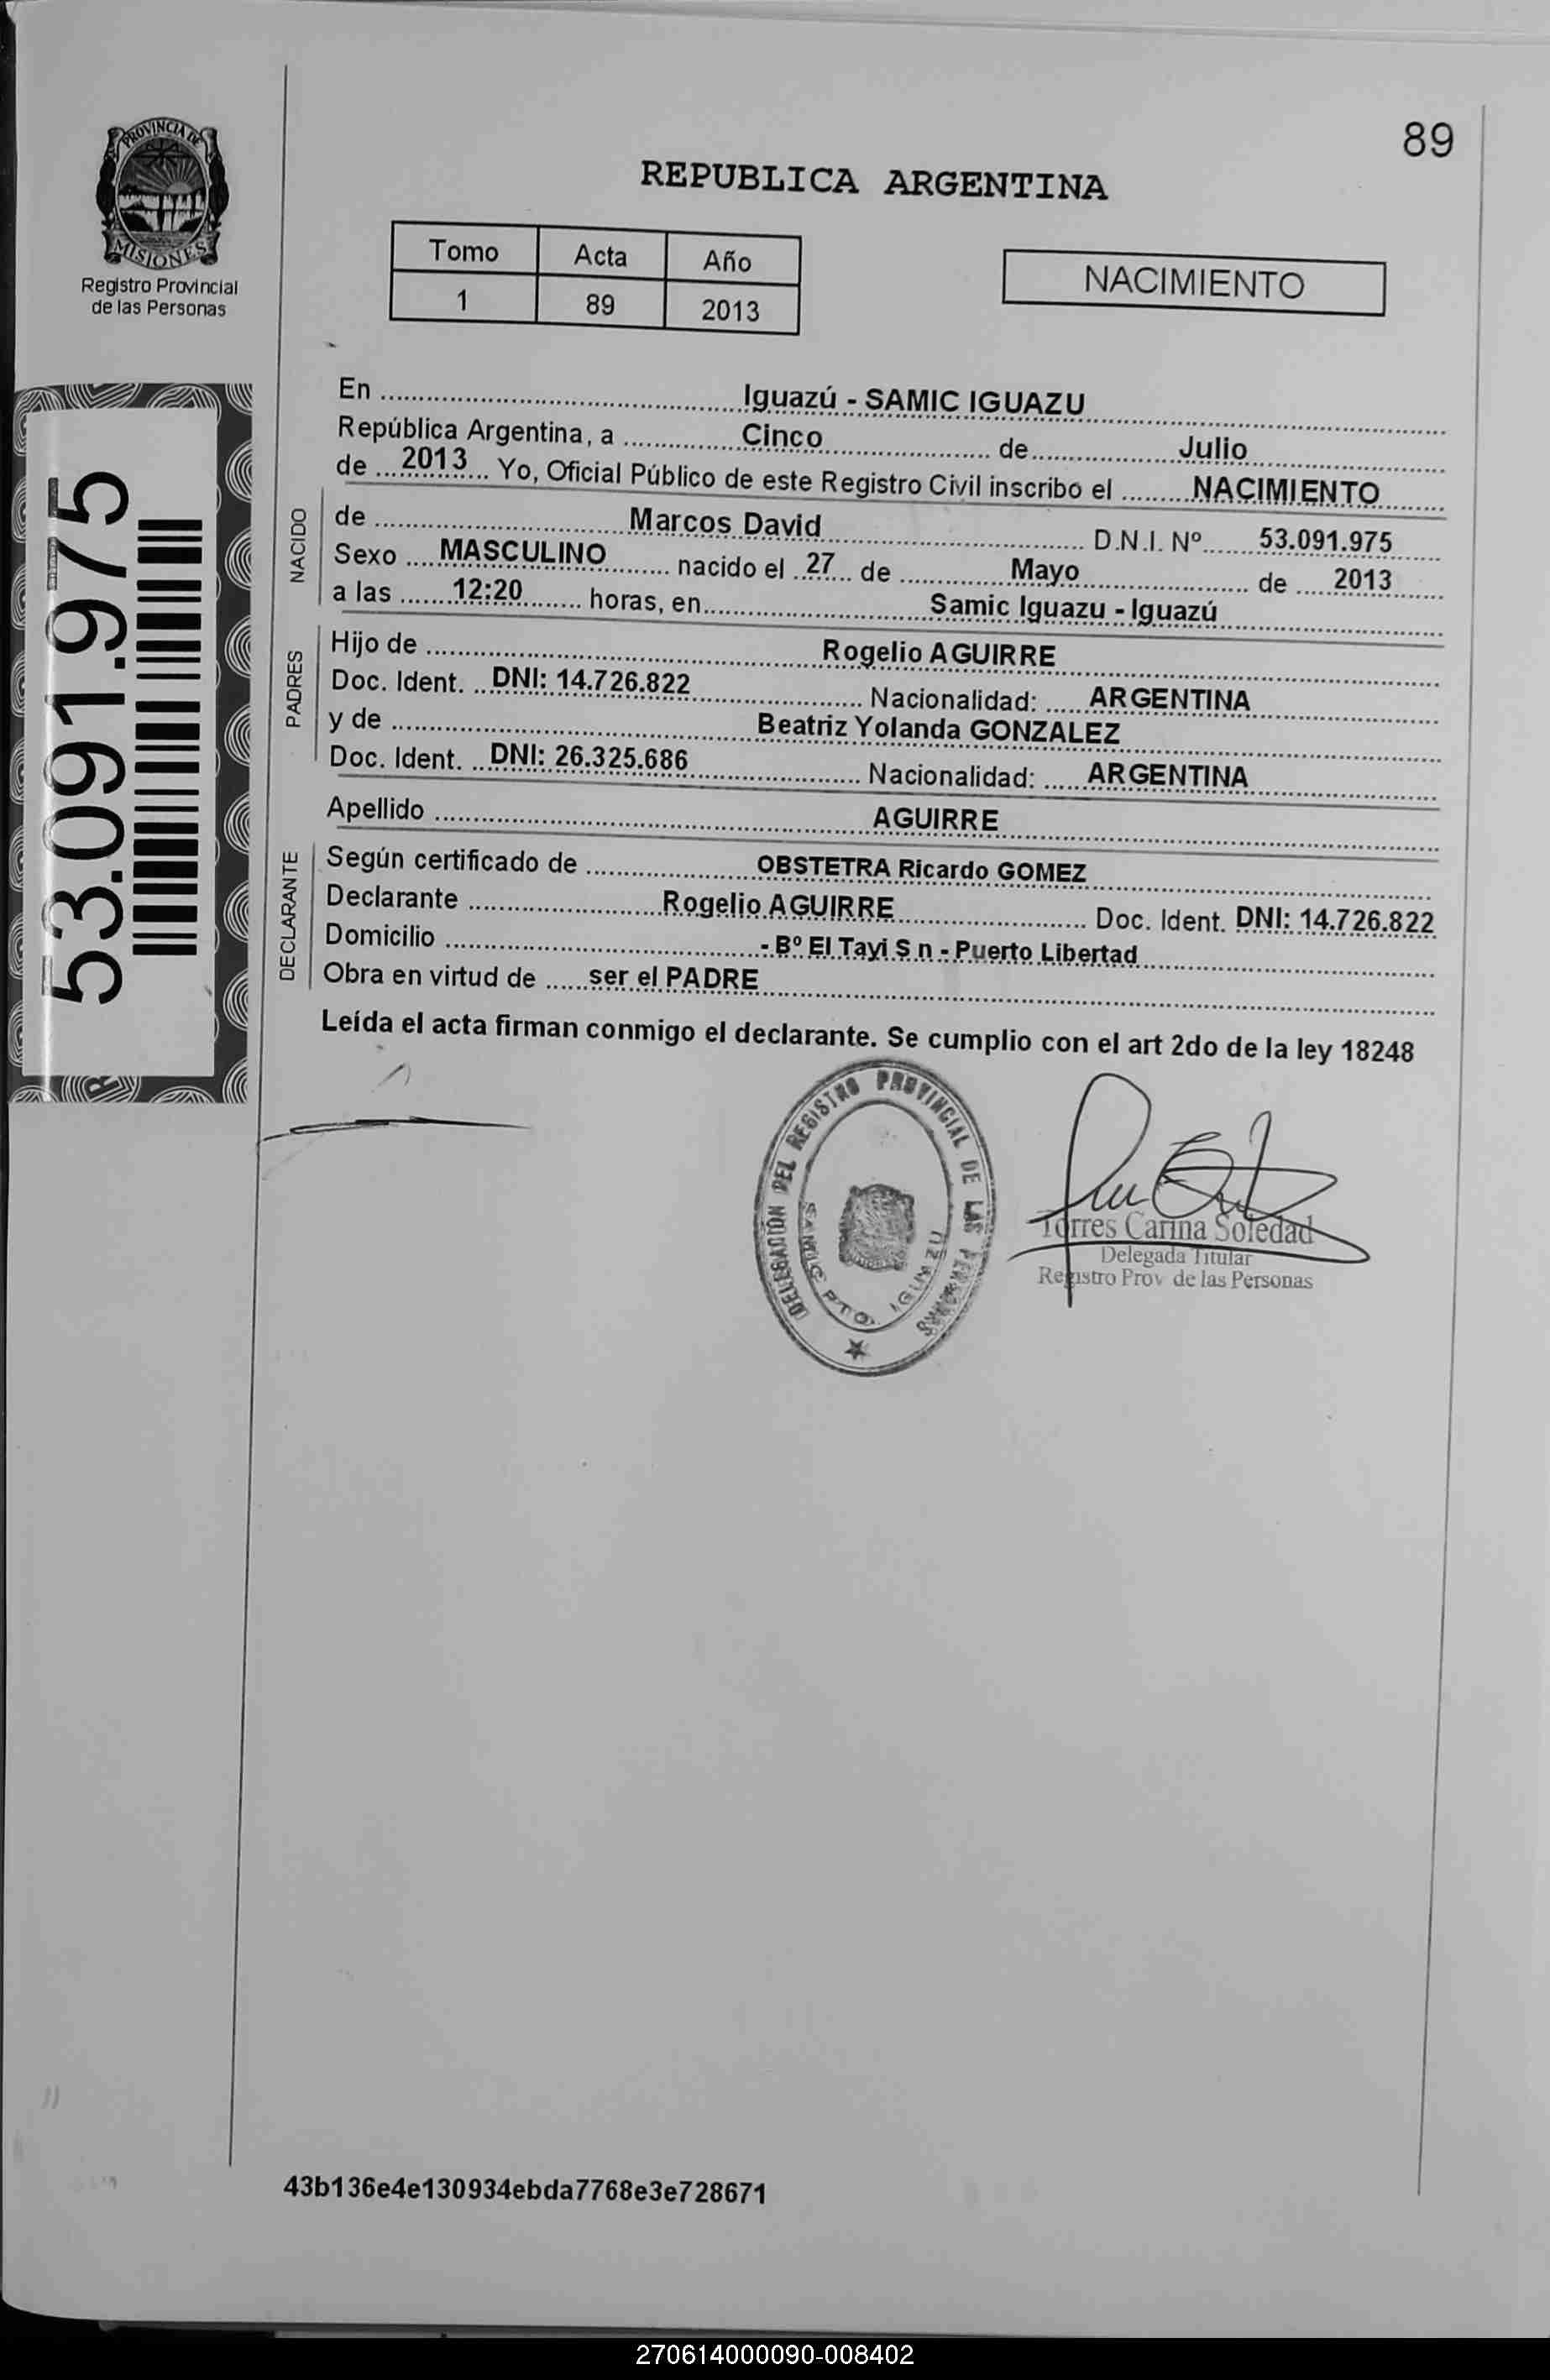 89
PROVINCIA DE
MISIONES
Registro Provincial
de las Personas
REPUBLICA ARGENTINA
Tomo Acta Año
1 89 2013
NACIMIENTO
53.091.975
En Iguazú - SAMIC IGUAZU
República Argentina, a Cinco de Julio
de 2013 Yo, Oficial Público de este Registro Civil inscribo el NACIMIENTO
NACIDO
de Marcos David D.N.I. Nº 53.091.975
Sexo MASCULINO nacido el 27 de Mayo de 2013
a las 12:20 horas, en Samic Iguazu - Iguazú
PADRES
Hijo de Rogelio AGUIRRE
Doc. Ident. DNI: 14.726.822 Nacionalidad: ARGENTINA
y de Beatriz Yolanda GONZALEZ
Doc. Ident. DNI: 26.325.686 Nacionalidad: ARGENTINA
Apellido AGUIRRE
DECLARANTE
Según certificado de OBSTETRA Ricardo GOMEZ
Declarante Rogelio AGUIRRE Doc. Ident. DNI: 14.726.822
Domicilio - Bº El Tayi S n - Puerto Libertad
Obra en virtud de ser el PADRE
Leída el acta firman conmigo el declarante. Se cumplio con el art 2do de la ley 18248
DELEGACION DEL REGISTRO PROVINCIAL DE LAS PERSONAS
SAMIC PTO. IGUAZU
Torres Carina Soledad
Delegada Titular
Registro Prov de las Personas
43b136e4e130934ebda7768e3e728671
270614000090-008402